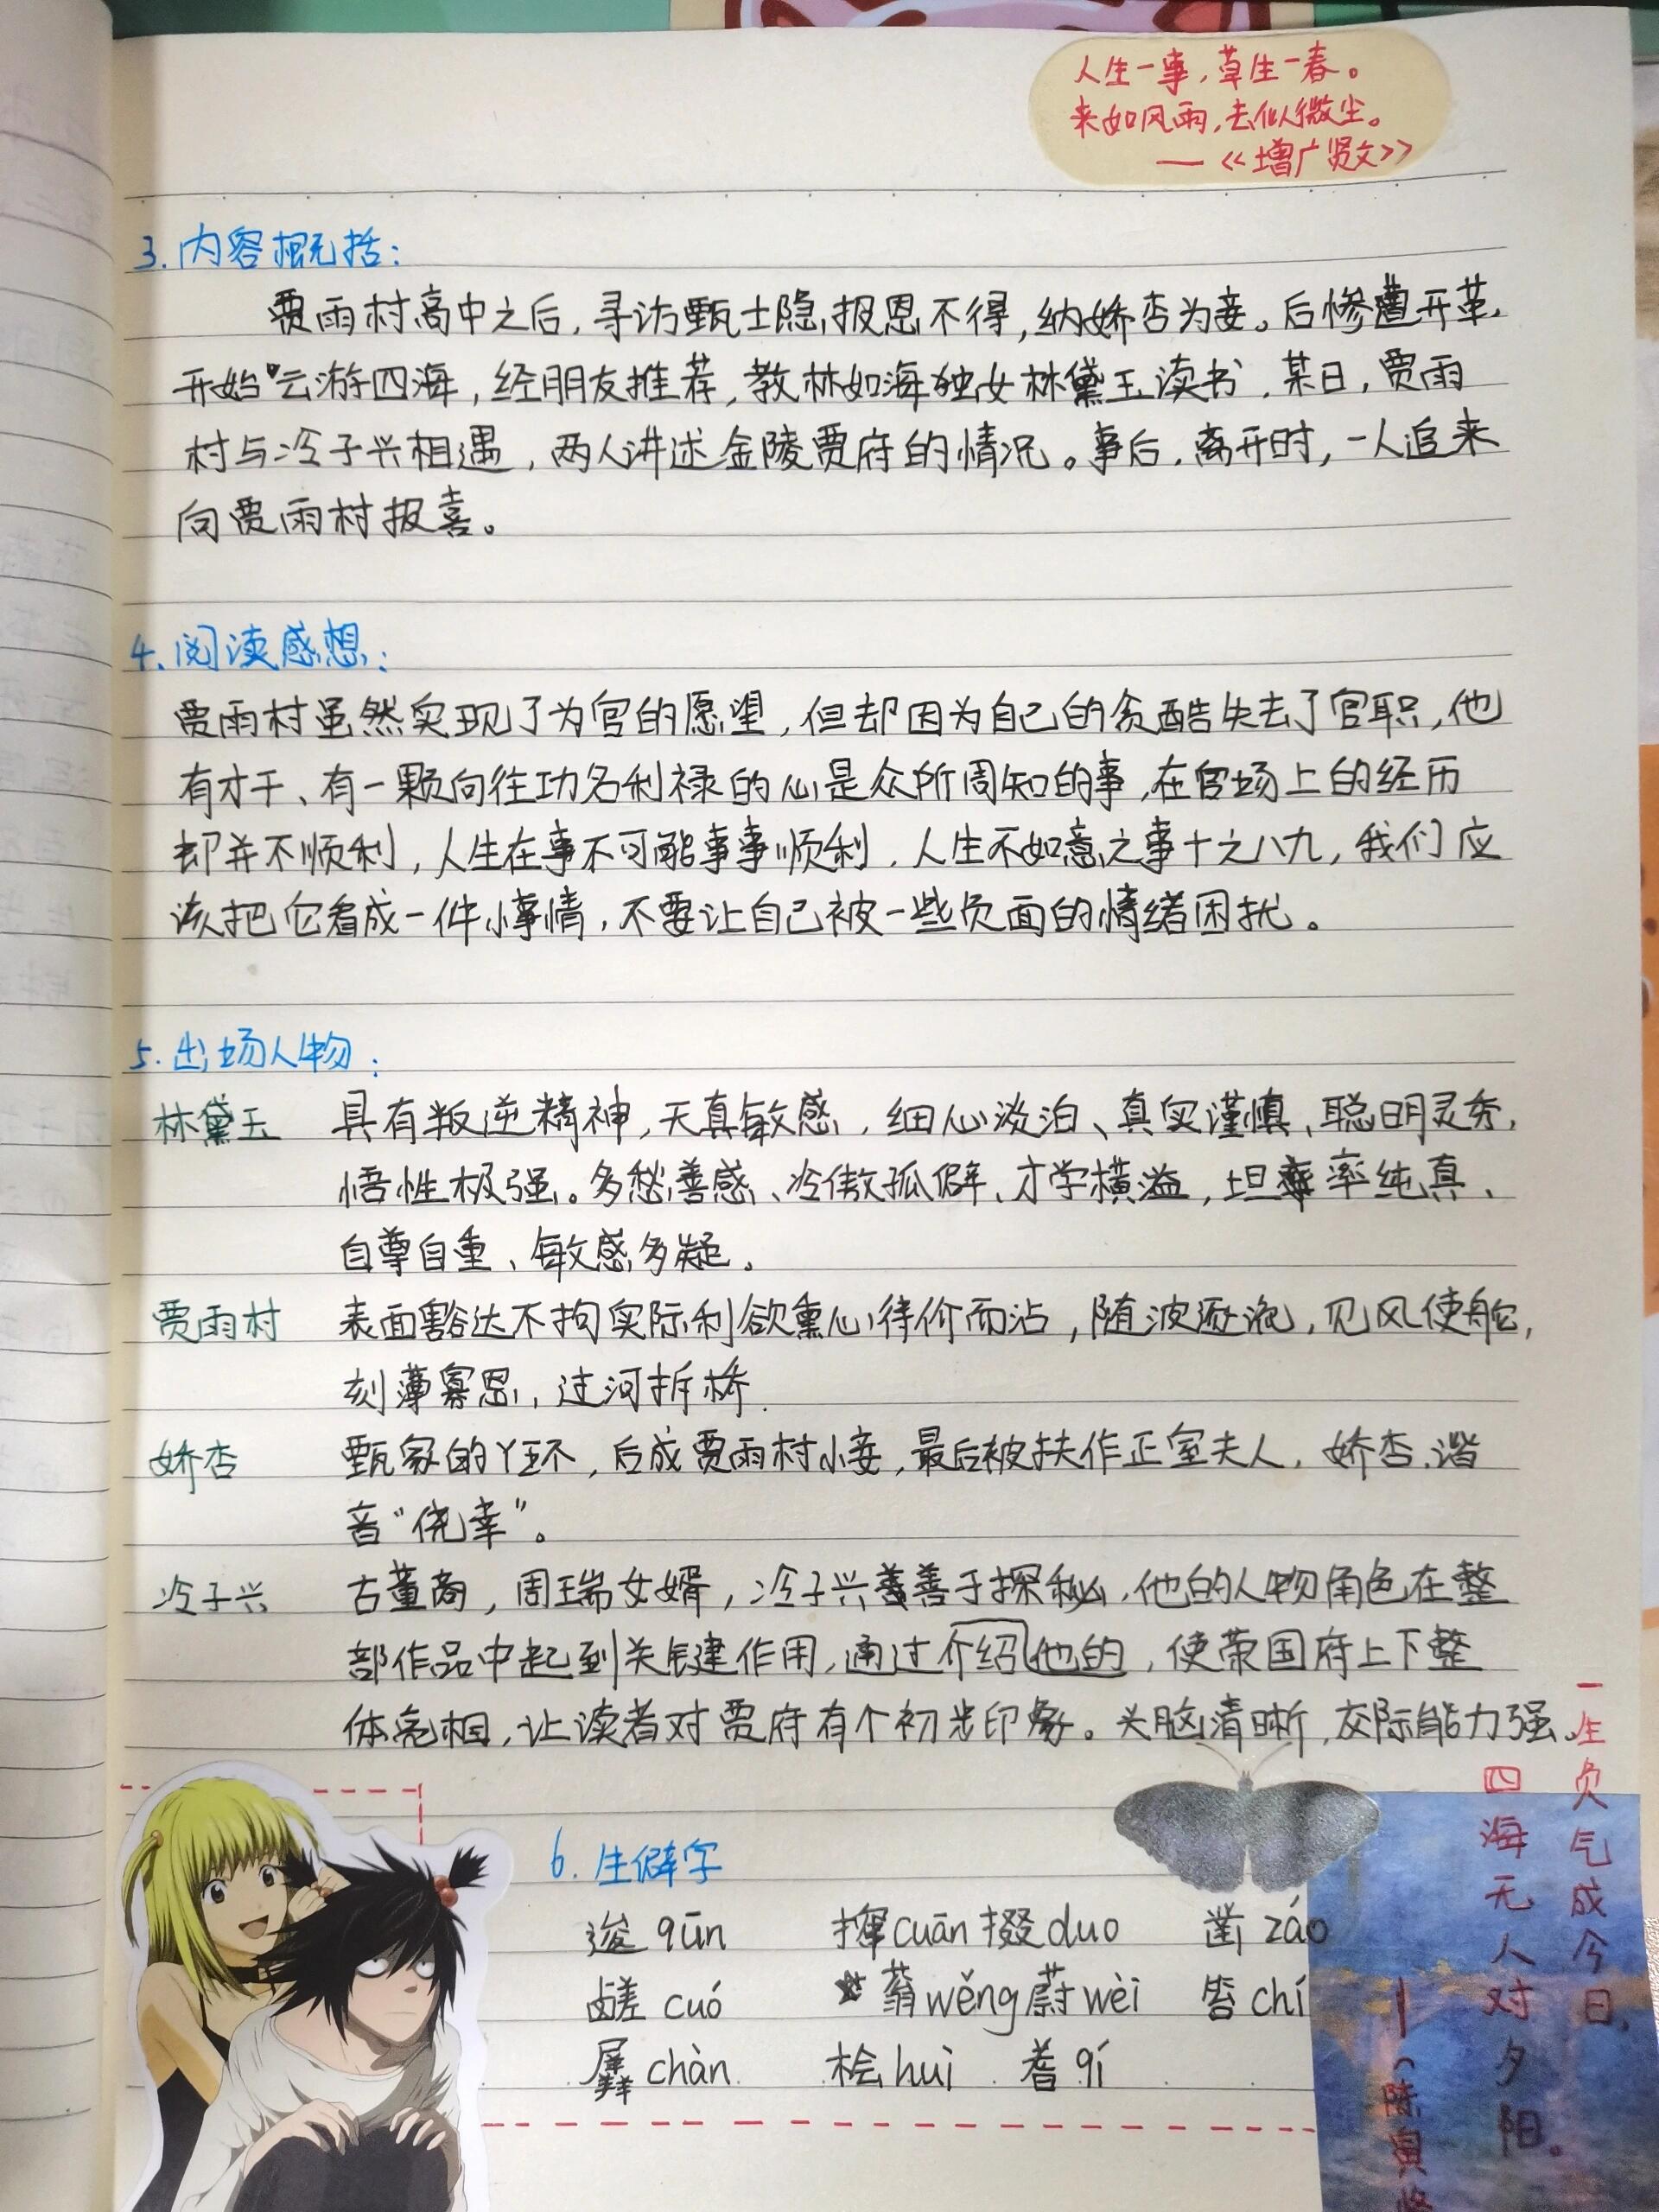 人生一事，草生一春。
来如风雨，去似微尘。
——《增广贤文》
3. 内容概括：
贾雨村高中之后，寻访甄士隐报恩不得，纳娇杏为妾。后惨遭开革，
开始云游四海，经朋友推荐，教林如海独女林黛玉读书，某日，贾雨
村与冷子兴相遇，两人讲述金陵贾府的情况。事后，离开时，一人追来
向贾雨村报喜。
4. 阅读感想：
贾雨村虽然实现了为官的愿望，但却因为自己的贪酷失去了官职，他
有才干、有一颗向往功名利禄的心是众所周知的事，在官场上的经历
却并不顺利，人生在事不可能事事顺利，人生不如意之事十之八九，我们应
该把它看成一件小事情，不要让自己被一些负面的情绪困扰。
5. 出场人物：
林黛玉 具有叛逆精神，天真敏感，细心淡泊、真实谨慎、聪明灵秀，
悟性极强。多愁善感、冷傲孤僻、才学横溢，坦率纯真、
自尊自重、敏感多疑。
贾雨村 表面豁达不拘实际利欲熏心待价而沽，随波逐流，见风使舵，
刻薄寡恩，过河拆桥.
娇杏 甄家的丫环，后成贾雨村小妾，最后被扶作正室夫人，娇杏，谐
音“侥幸”。
冷子兴 古董商，周瑞女婿，冷子兴善于探秘，他的人物角色在整
部作品中起到关键作用，通过介绍他的，使荣国府上下整
体亮相，让读者对贾府有个初步印象。头脑清晰，交际能力强。
6. 生僻字
逡 qūn 撺 cuān 掇 duo 凿 záo
鹾 cuó 蓊 wěng 蔚 wèi 笞 chí
羼 chàn 桧 huì 耆 qí
一生负气成今日，
四海无人对夕阳。
——（陈寅恪